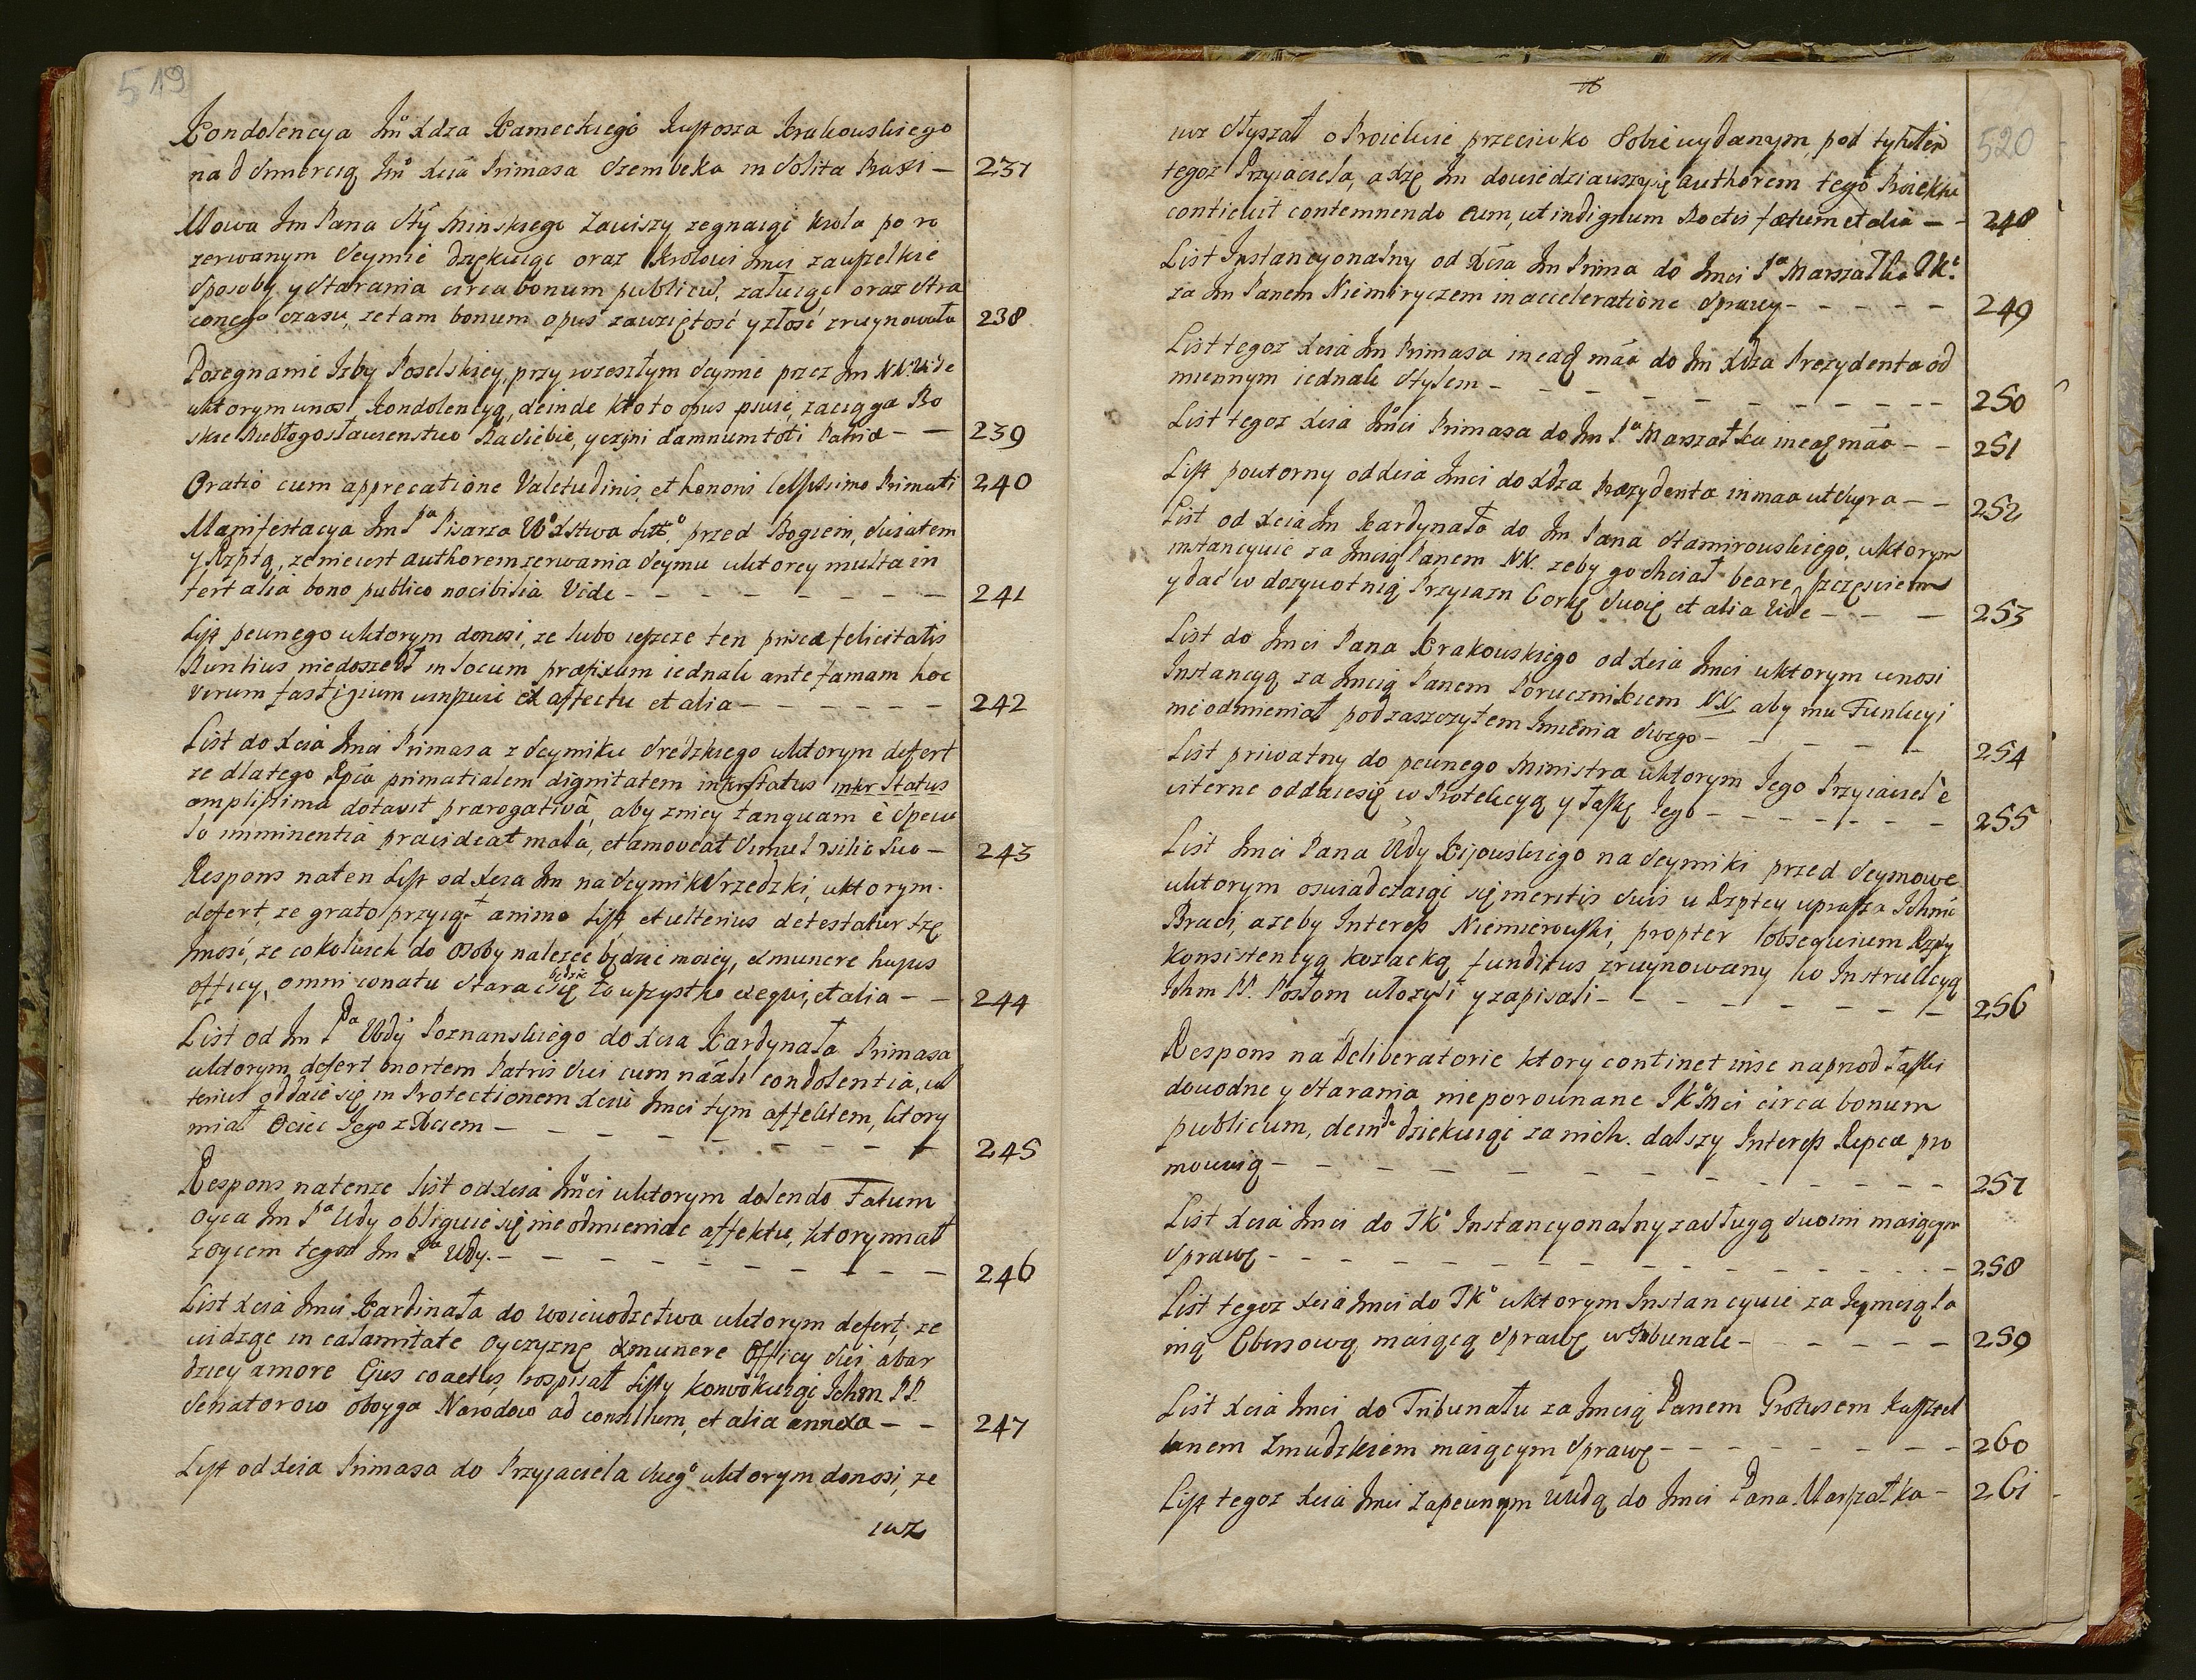 519
Kondolencya Jmo Xdza Kameckiego Kustosza Krakowskiego
nad Smiercią Jmo Xcia Primasa Szembeka in solita Phrasi — 237
Mowa Jm Pana Stty Minskiego Zawiszy zegnaiąc Krola po ro
zerwanym Seymie dziękuiąc oraz Krolowi Jmci za wszelkie
Sposoby y Starania circa bonum publicu, załuiąc oraz stra
conego czasu, ze tam bonum opus zawziętość y złość zruynowała 238
Pozegnanie Izby Poselskiey, przy wzeszłym Seymie przez Jm NN. Vide
wktorym unosi Kondolencyą, deinde kto to opus psuie, zaciąga Bo
skie Niebłogosławienstwo Na siebie, y czyni damnum toti Patriæ — — 239
Oratio cum apprecatione Valetudinis, et honoris Celssissimo Primati 240
Manifestacya Jm Pa Pisarza W° Xstwa Litt° przed Bogiem, Swiatem
y Rzptą, ze nie iest authorem zerwania Seymu wktorey multa in
fert alia bono publico nocibilia Vide — — — — — — — — 241
List pewnego wktorym donosi, ze lubo ieszcze ten priscæ felicitatis
Nuntius niedoszedł in locum præfixum iednak ante famam hoc
Verum fastigium winszuie ex affectu et alia — — — — — — 242
List do Xcia Jmci Primasa z Seymiku Sredzkiego wktorym defert
ze dlatego Rpca primatialem dignitatem inter status inter Status
amplissima dotavit prærogativâ, aby zniey tanquam è Specu
la imminentia præuideat mala, et amoveat Simul consilio Suo — 243
Respons na ten List od Xcia Jm na Seymik Srzedzki, wktorym
defert, ze grato przyiął animo List, et ulterius detestatur Xzę
Jmość, ze cokolwiek do Osoby nalezec będzie moiey, ex munere hujus
officy, omni conatu starac się będzie to wszystko exequi, et alia — — 244
List od Jm Pa Wdy Poznanskiego do Xcia Kardynała Primasa
wktorym defert mortem Patris Sui cum naali condolentia, ul
terius oddaie się in Protectionem Xcia Jmci tym affektem, ktory
miał Ociec Jego z Xciem — — — — — — — — — — 245
Respons natenze list od Xcia Jmci wktorym dolendo Fatum
Oyca Jm Pa Wdy obliguie się nie odmieniac affektu, ktory miał
z Oycem tegoz Jm Pa Wdy. — — — — — — — — — — 246
List Xcia Jmci Kardinała do Woiewodzctwa wktorym defert, ze
widząc in calamitate Oyczyznę ex munere Officy Sui, a bar
dziey amore Ejus coactus, rospisał Listy konwokuiąc Ichm PP.
Senatorow oboyga Narodow ad consilium, et alia annexa — — 247
List od Xcia Primasa do Przyiaciela Sweg° wktorym donosi, ze
iuz
520
iuz Słyszał o Proiekcie przeciwko Sobie wydanym, pod tytułem
tegoz Przyiaciela, a Xżę Jm dowiedziawszysię authorem tego Proiektu
conticuit contemnendo eum, ut indignum Noctis fætum et alia — — 248
List Instancyonalny od Xcia Jm Prima do Jmci Pa Marszałka Tk°
za Jm Panem Niemiryczem in acceleratione Sprawy — — — — — 249
List tegoz Xcia Jm Primasa in eaq mãa do Jm Xdza Prezydenta od
miennym iednak Stylem — — — — — — — — — — — 250
List tegoz Xcia Jmci Primasa do Jm Pa Marszałka in eaq mãa — — 251
List powtorny od Xcia Jmci do Xdza Prezydenta in maa ut Supra — — 252
List od Xcia Jm Kardynała do Jm Pana Stamirowskiego, wktorym
instancyuie za Jmcią Panem NN. zeby go chciał beare szczęsciem
y dać w dozywotnią Przyiazn Corkę Swoię et alia Vide — — — 253
List do Jmci Pana Krakowskiego od Xcia Jmci wktorym wnosi
Instancyą za Jmcią Panem Porucznikiem NN. aby mu Funkcyi
nieodmieniał pod zaszczytem Jmienia Swego — — — — — 254
List priwatny do pewnego Ministra wktorym Jego Przyiaciel è
viterne oddaiesię w Protekcyą y Łaskę Jego — — — — — — — 255
List Jmci Pana Wdy Kijowskiego na Seymiki przed Seymowe
wktorym oswiadczaiąc się meritis Suis u Rzptey uprasza Ichmć
Braci, azeby Interess Niemierowski, propter obsequium Rzpty
Konsistencyą kozacką funditus zruynowany w Instrukcyą
Ichm PP. Posłom włozyli y zapisali — — — — — — 256
Respons na Deliberatorie ktory continet inse naprzod Łaski
dowodne y Starania nieporownane JKMci circa bonum
publicum, deinde dziekuiąc za nich. dalszy Interess Rpcæ pro
mowuią — — — — — — — — — — — 257
List Xcia Jmci do Tk° Instancyonalny za Sługą Swoim maiącym
Sprawę — — — — — — — — — — — 258
List tegoz Xcia Jmci do Tk° wktorym Instancyuie za Jeymcią Pa
nią Ebersową maiącą Sprawę w Tribunale — — — — — 259
List Xcia Jmci do Tribunału za Jmcią Panem Grotusem Kasztel
lanem Zmudzkiem maiącym Sprawę — — — — — — — — 260
List tegoz Xcia Jmci za pewnym Wdą do Jmci Pana Marszałka — 261